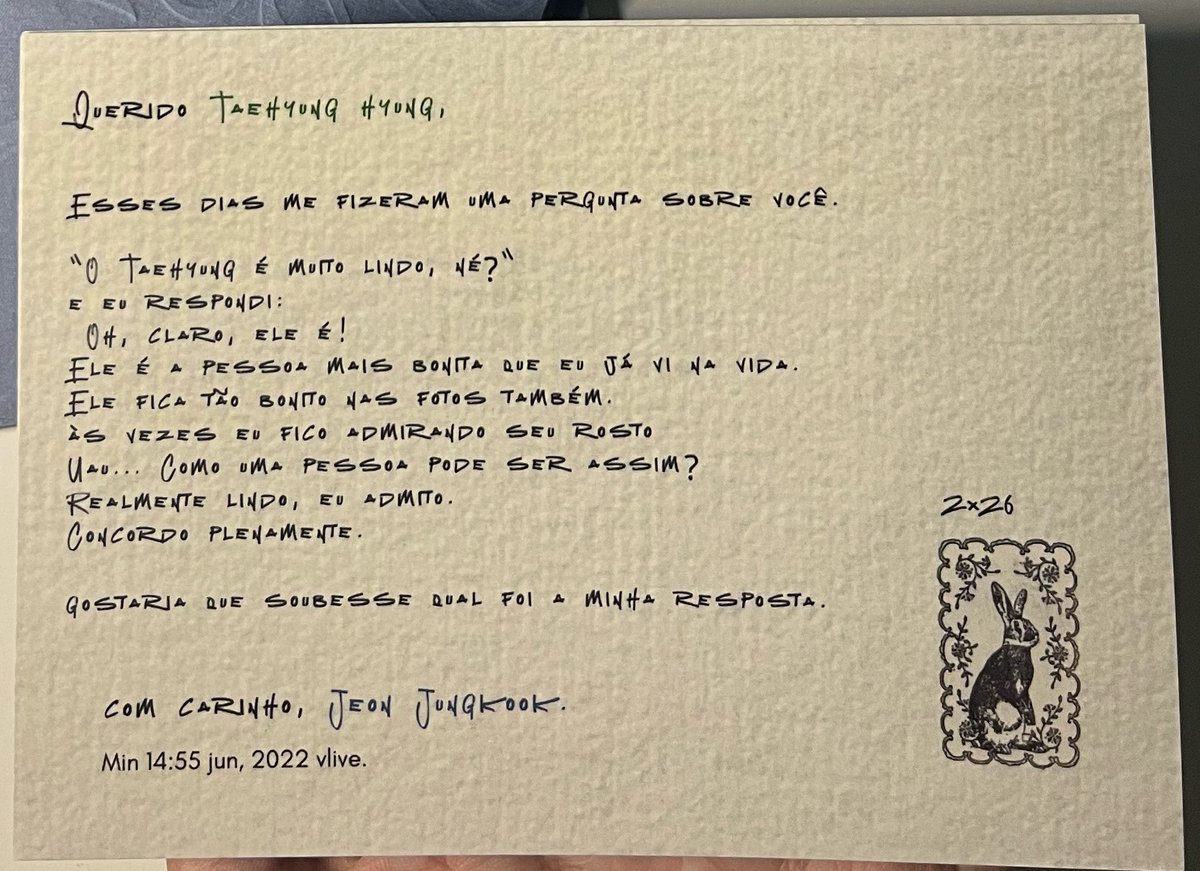 Querido Taehyung hyung,
Esses dias me fizeram uma pergunta sobre você.
"O Taehyung é muito lindo, né?"
e eu respondi:
Oh, claro, ele é!
Ele é a pessoa mais bonita que eu já vi na vida.
Ele fica tão bonito nas fotos também.
às vezes eu fico admirando seu rosto
Uau... Como uma pessoa pode ser assim?
Realmente lindo, eu admito.
Concordo plenamente.
2x26
gostaria que soubesse qual foi a minha resposta.
com carinho, Jeon Jungkook.
Min 14:55 jun, 2022 vlive.